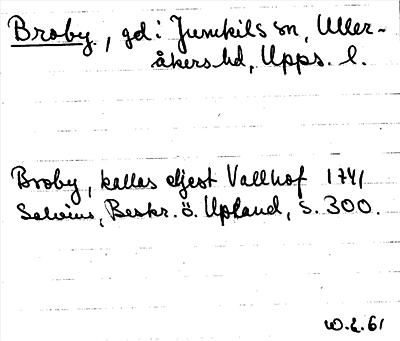 Broby, gd i Jumkils sn, Uller-
åkers hd, Upps. l.
Broby, kallas eljest Vallhof 1741
Salvius, Beskr. ö. Upland, s. 300.
W.L. 61